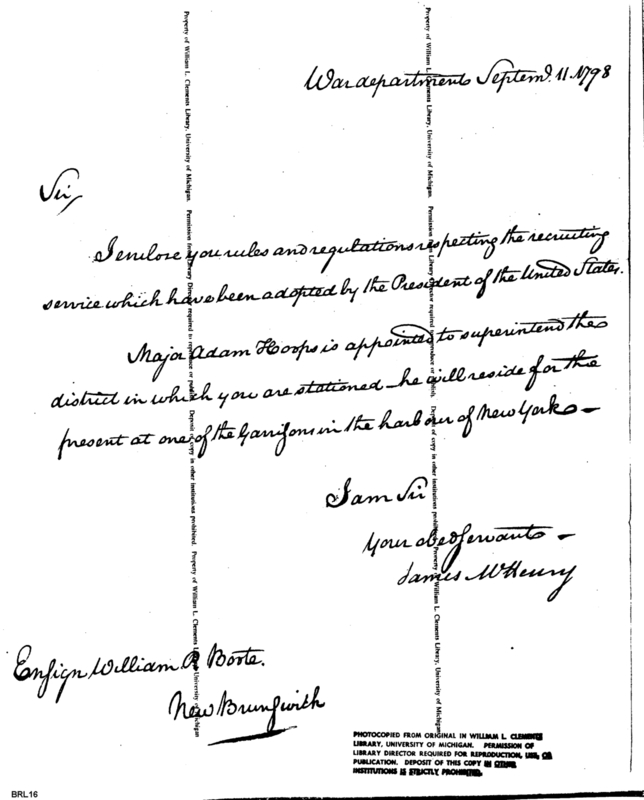 War department Septemr. 11. 1798
Sir,
I enclose you rules and regulations respecting the recruiting
service which have been adopted by the President of the United States.
Major Adam Hoops is appointed to superintend the
district in which you are stationed – he will reside for the
present at one of the Garrisons in the harbour of New York –
I am Sir
Your obed servant –
James McHenry
Ensign William R Boote.
New Brunswick
Property of William L. Clements Library, University of Michigan. Permission from Library Director required to reproduce or publish. Deposit of copy in other institutions prohibited. Property of William L. Clements Library, University of Michigan
Property of William L. Clements Library, University of Michigan. Permission from Library Director required to reproduce or publish. Deposit of copy in other institutions prohibited. Property of William L. Clements Library, University of Michigan
PHOTOCOPIED FROM ORIGINAL IN WILLIAM L. CLEMENTS
LIBRARY, UNIVERSITY OF MICHIGAN. PERMISSION OF
LIBRARY DIRECTOR REQUIRED FOR REPRODUCTION, USE, OR
PUBLICATION. DEPOSIT OF THIS COPY IN OTHER
INSTITUTIONS IS STRICTLY PROHIBITED.
BRL16